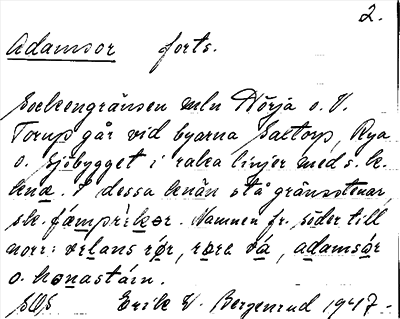 2.
Adamsor forts.
Sockengränsen mln Hörja o. V.
Torup går vid byarna Saltorp, Rya
o. Sjöbygget i raka linjer med s. k.
kna. I dessa knän stå gränsstenar,
sk. fámprikor. Namnen fr. söder till
norr: vrlans rør, røra vá, adamsør
o. kønastáin.
Erik V. Bergenrud 1947.